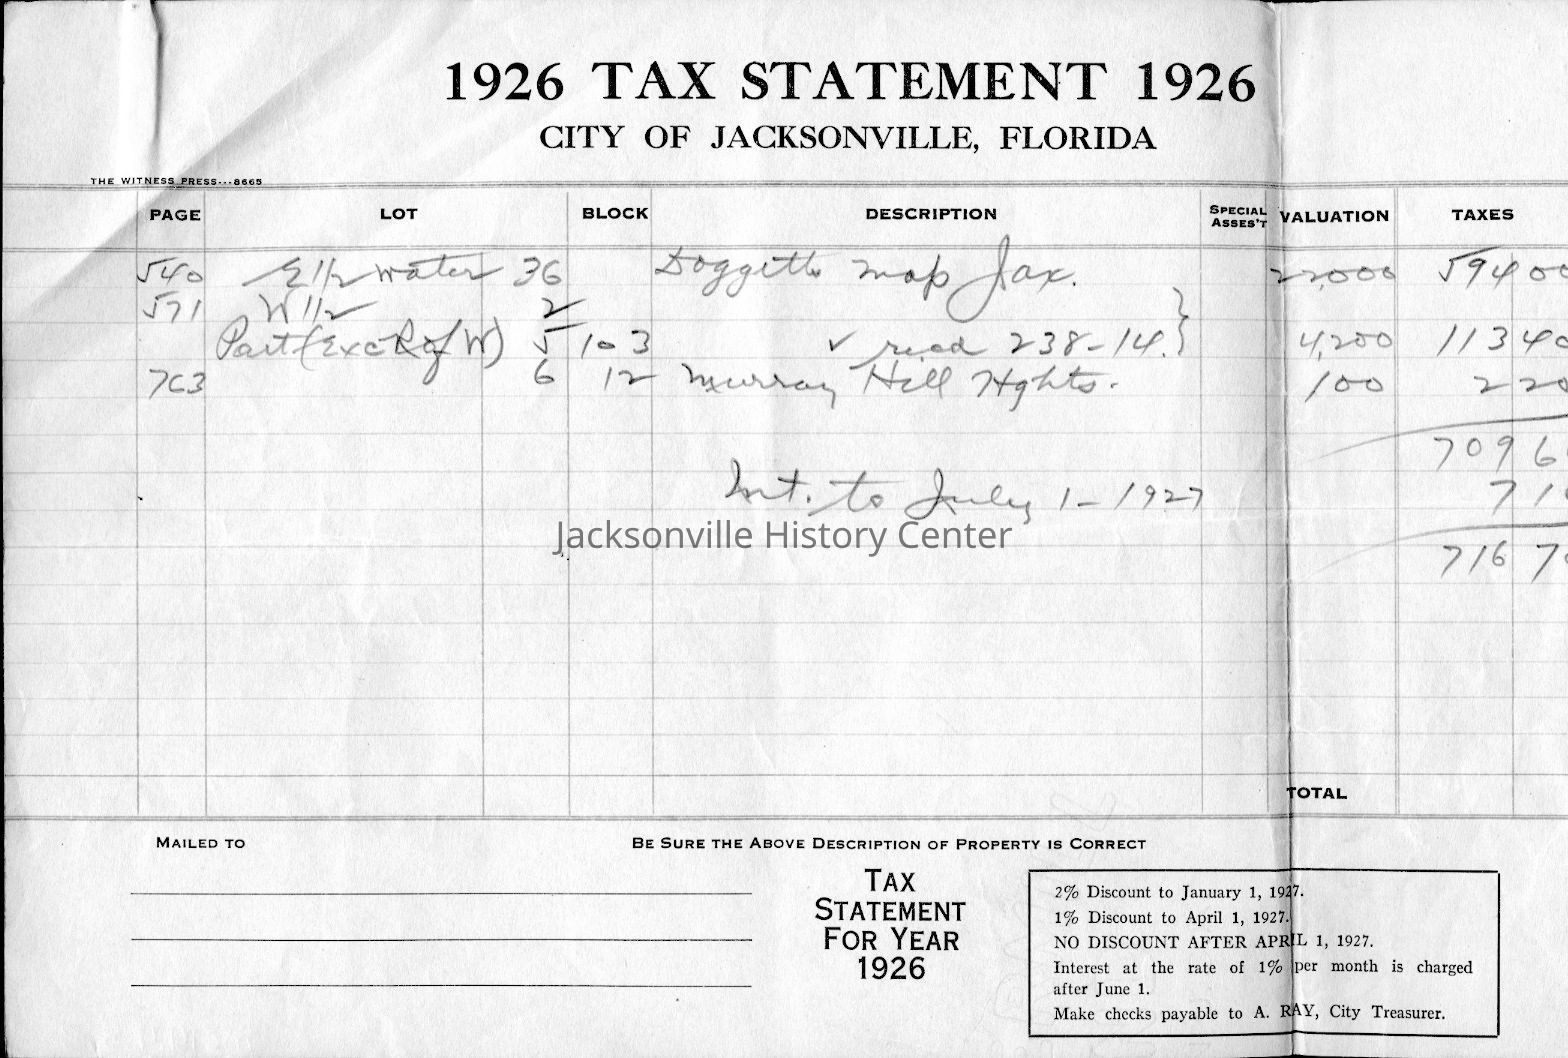 1926 TAX STATEMENT 1926
CITY OF JACKSONVILLE, FLORIDA
THE WITNESS PRESS---8665
PAGE LOT BLOCK DESCRIPTION SPECIAL ASSES'T VALUATION TAXES
540 E 1/2 water 36 Doggetts map Jax. 22,000 594 00
571 W 1/2 2
Part (Exc R of W) 5 103 ✓ 238-14. } 4,200 113 40
763 6 12 Murray Hill Hghts. 100 2 20
709 6
Int. to July 1-1927 7 1
716 7
Jacksonville History Center
TOTAL
MAILED TO
BE SURE THE ABOVE DESCRIPTION OF PROPERTY IS CORRECT
TAX
STATEMENT
FOR YEAR
1926
2% Discount to January 1, 1927.
1% Discount to April 1, 1927.
NO DISCOUNT AFTER APRIL 1, 1927.
Interest at the rate of 1% per month is charged
after June 1.
Make checks payable to A. RAY, City Treasurer.